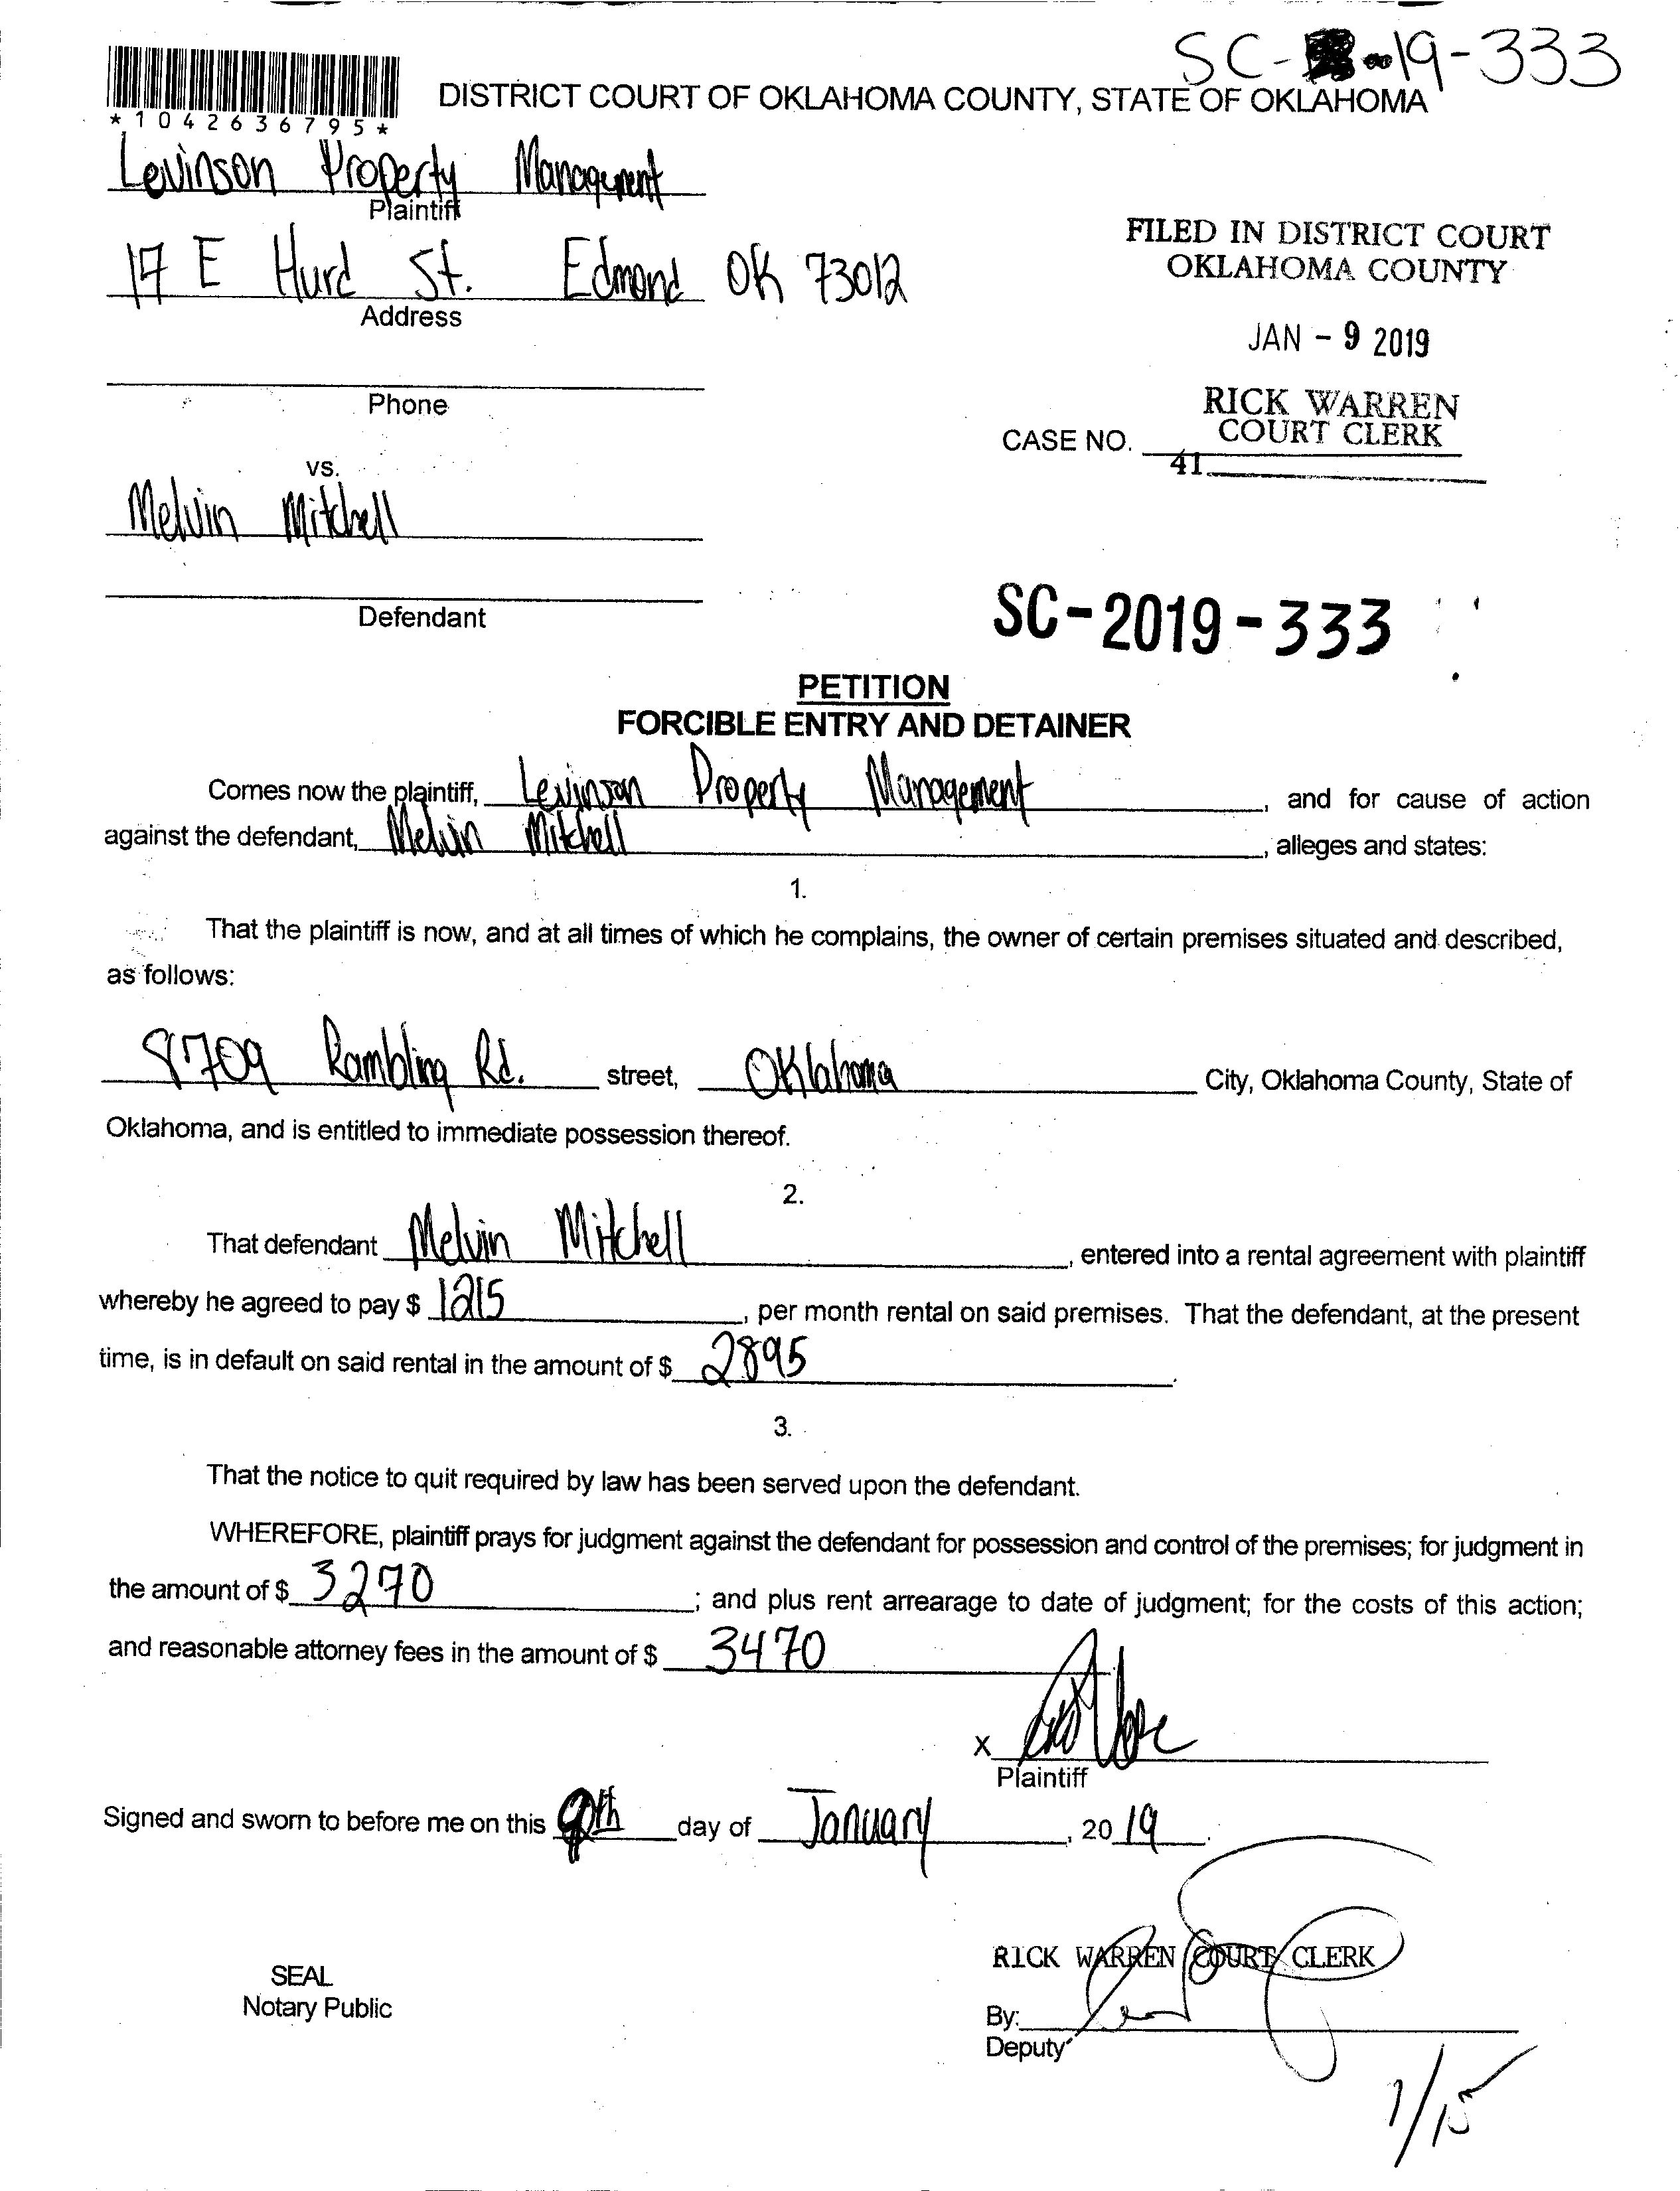 SC-19-333
*1042636795*
DISTRICT COURT OF OKLAHOMA COUNTY, STATE OF OKLAHOMA
Levinson Property Management
Plaintiff
17 E Hurd St. Edmond OK 73012
Address
FILED IN DISTRICT COURT
OKLAHOMA COUNTY
JAN - 9 2019
Phone
RICK WARREN
COURT CLERK
CASE NO.
41
vs.
Melvin Mitchell
Defendant
SC-2019-333
PETITION
FORCIBLE ENTRY AND DETAINER
Comes now the plaintiff, Levinson Property Management, and for cause of action
against the defendant, Melvin Mitchell, alleges and states:
1.
That the plaintiff is now, and at all times of which he complains, the owner of certain premises situated and described,
as follows:
8709 Rambling Rd. street, Oklahoma City, Oklahoma County, State of
Oklahoma, and is entitled to immediate possession thereof.
2.
That defendant Melvin Mitchell, entered into a rental agreement with plaintiff
whereby he agreed to pay $ 1215, per month rental on said premises. That the defendant, at the present
time, is in default on said rental in the amount of $ 2895.
3.
That the notice to quit required by law has been served upon the defendant.
WHEREFORE, plaintiff prays for judgment against the defendant for possession and control of the premises; for judgment in
the amount of $ 3270; and plus rent arrearage to date of judgment; for the costs of this action;
and reasonable attorney fees in the amount of $ 3470
X
Plaintiff
Signed and sworn to before me on this 9th day of January, 2019.
RICK WARREN COURT CLERK
SEAL
Notary Public
By:
Deputy
1/15